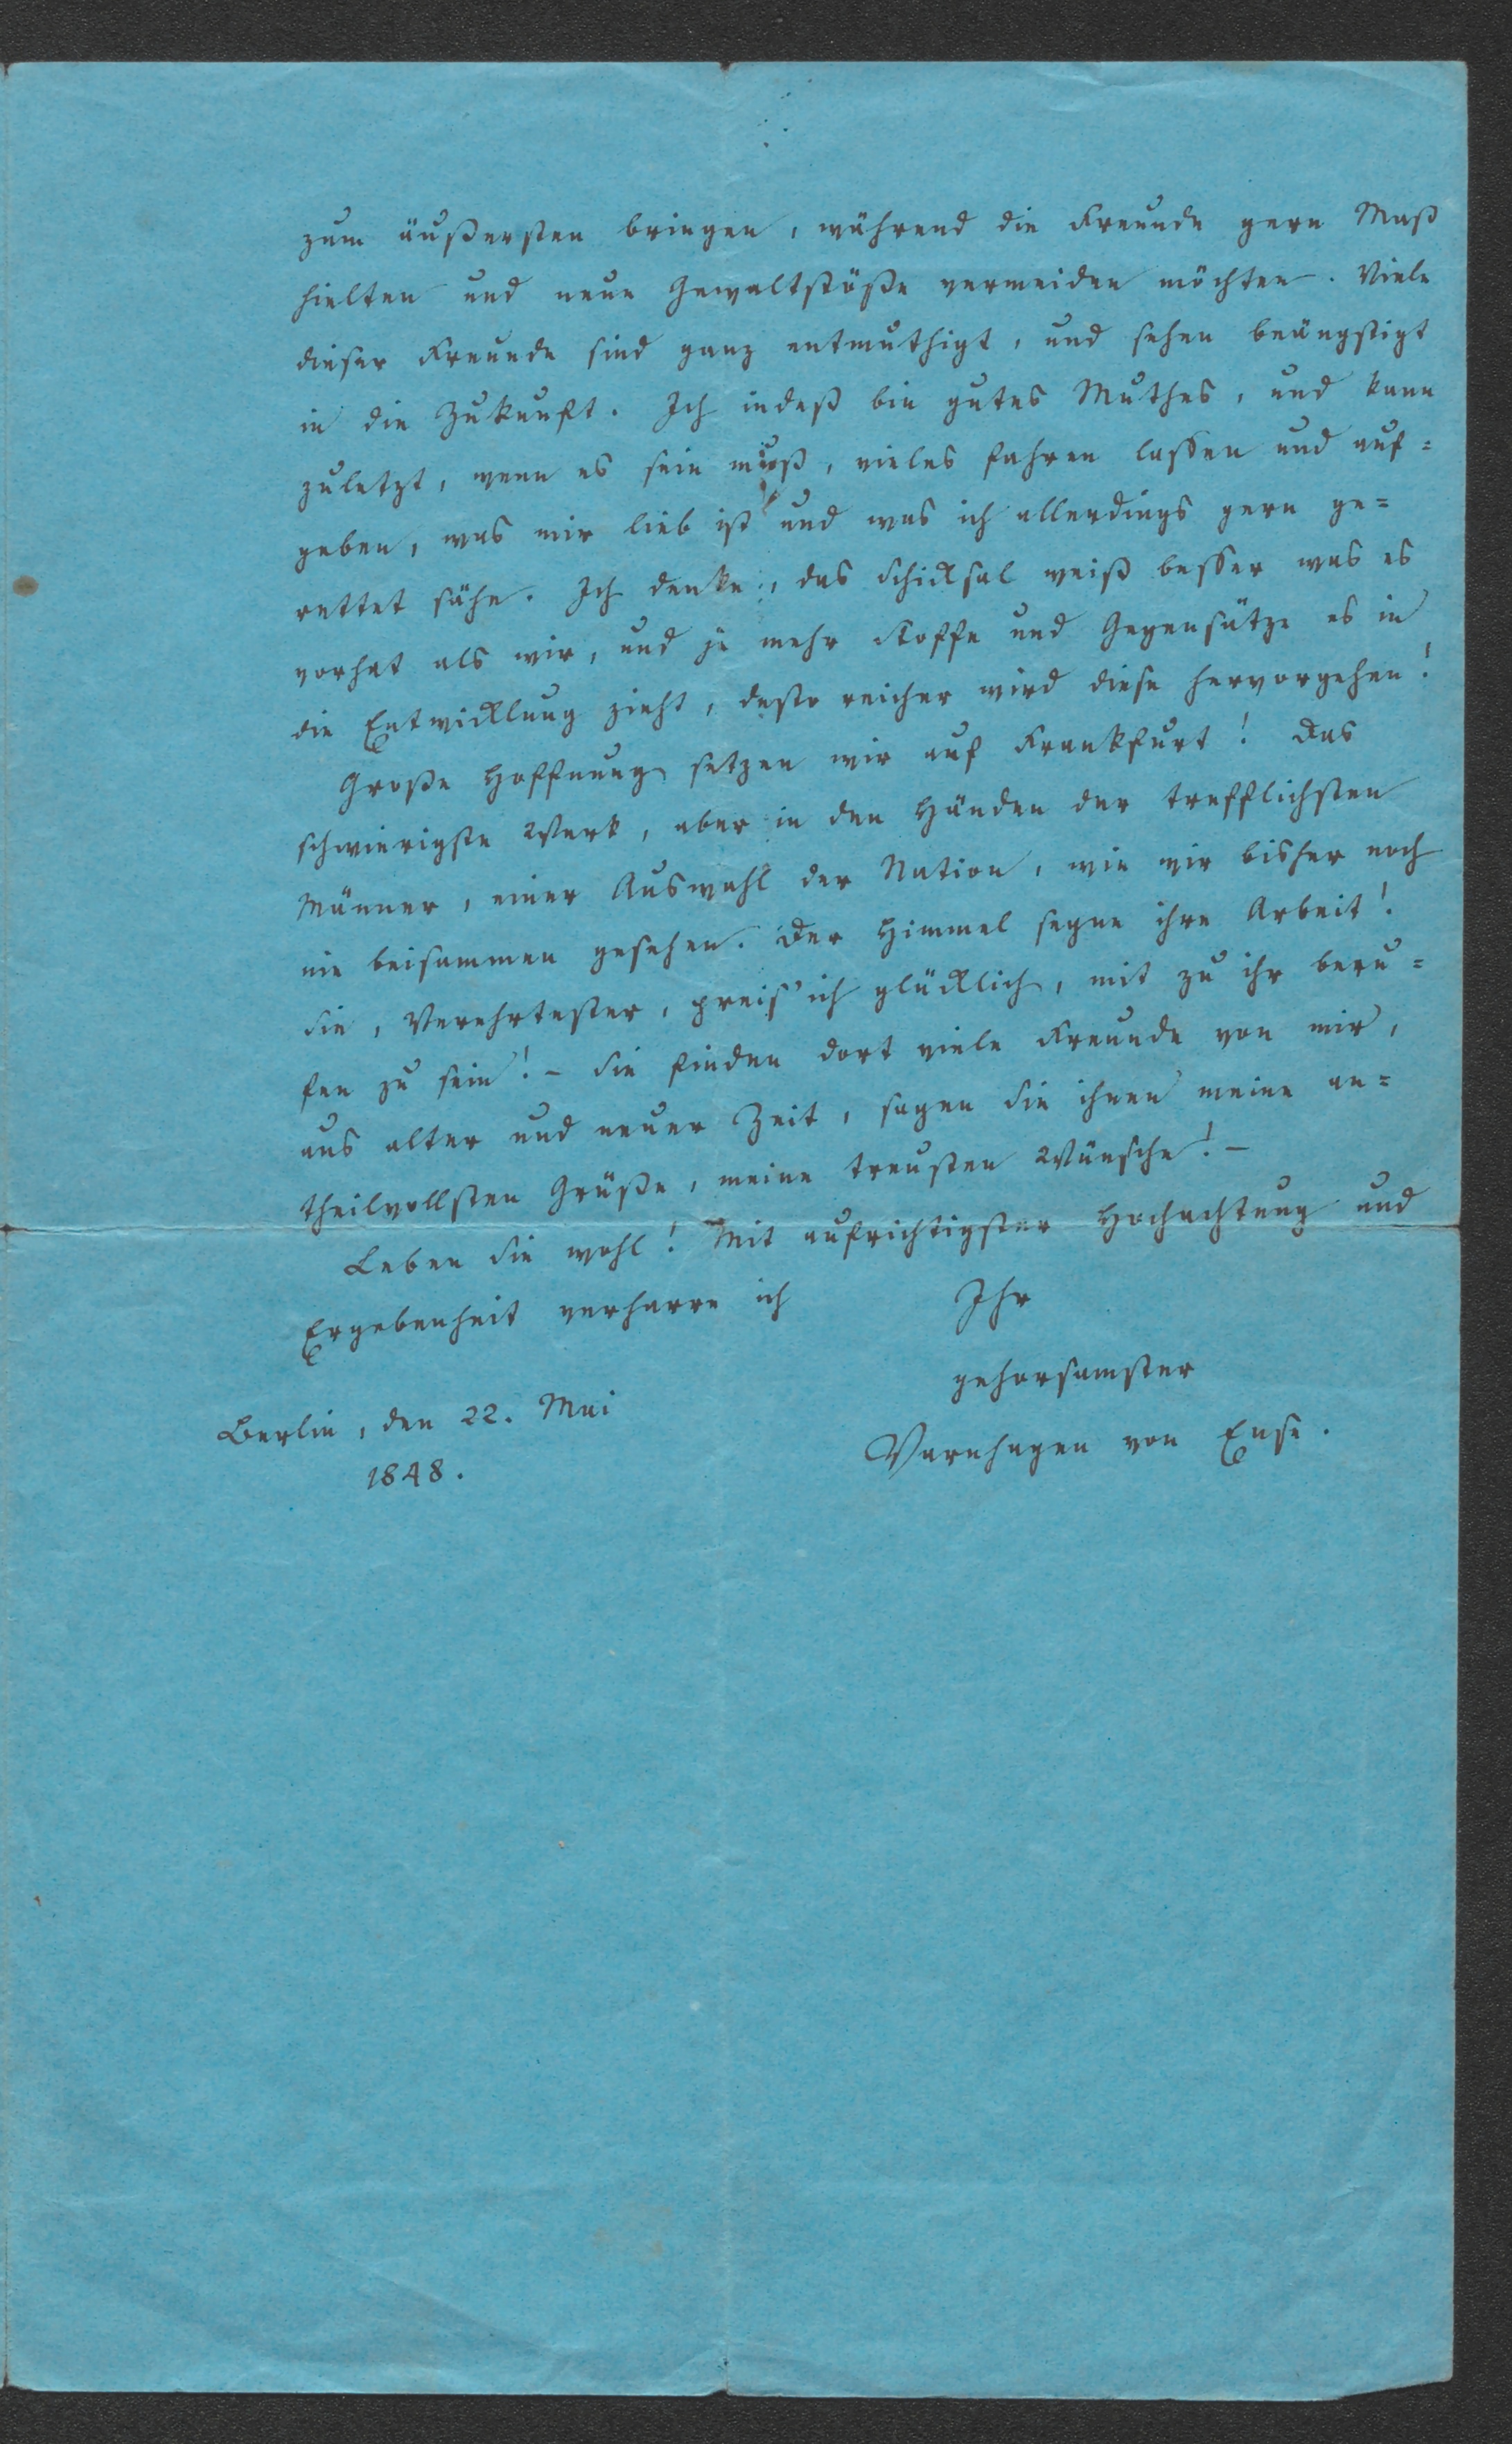 zum äußersten bringen, während die Freunde gern Maß
hielten und neue Gewaltstöße vermeiden möchten. Viele
dieser Freunde sind ganz entmuthigt, und sehen beängstigt
in die Zukunft. Ich indeß bin gutes Muthes, und kann
zuletzt, wenn es sein muß, vieles fahren lassen und auf=
geben, was mir lieb ist und was ich allerdings gern ge=
rettet sähe. Ich denke, das Schicksal weiß besser was es
vorhat als wir, und je mehr Stoffe und Gegensätze es in
die Entwicklung zieht, desto reicher wird diese hervorgehen!
Große Hoffnung setzen wir auf Frankfurt! Das
schwierigste Werk, aber in den Händen der trefflichsten
Männer, einer Auswahl der Nation, wie wir bisher noch
nie beisammen gesehen. Der Himmel segne ihre Arbeit!
Sie, Verehrtester, preis' ich glücklich, mit zu ihr beru=
fen zu sein! – Sie finden dort viele Freunde von mir,
aus alter und neuer Zeit, sagen Sie ihnen meine an=
theilvollsten Grüße, meine treusten Wünsche! –
Leben Sie wohl! Mit aufrichtigster Hochachtung und
Ergebenheit verharre ich Ihr
gehorsamster
Berlin, den 22. Mai
Varnhagen von Ense.
1848.